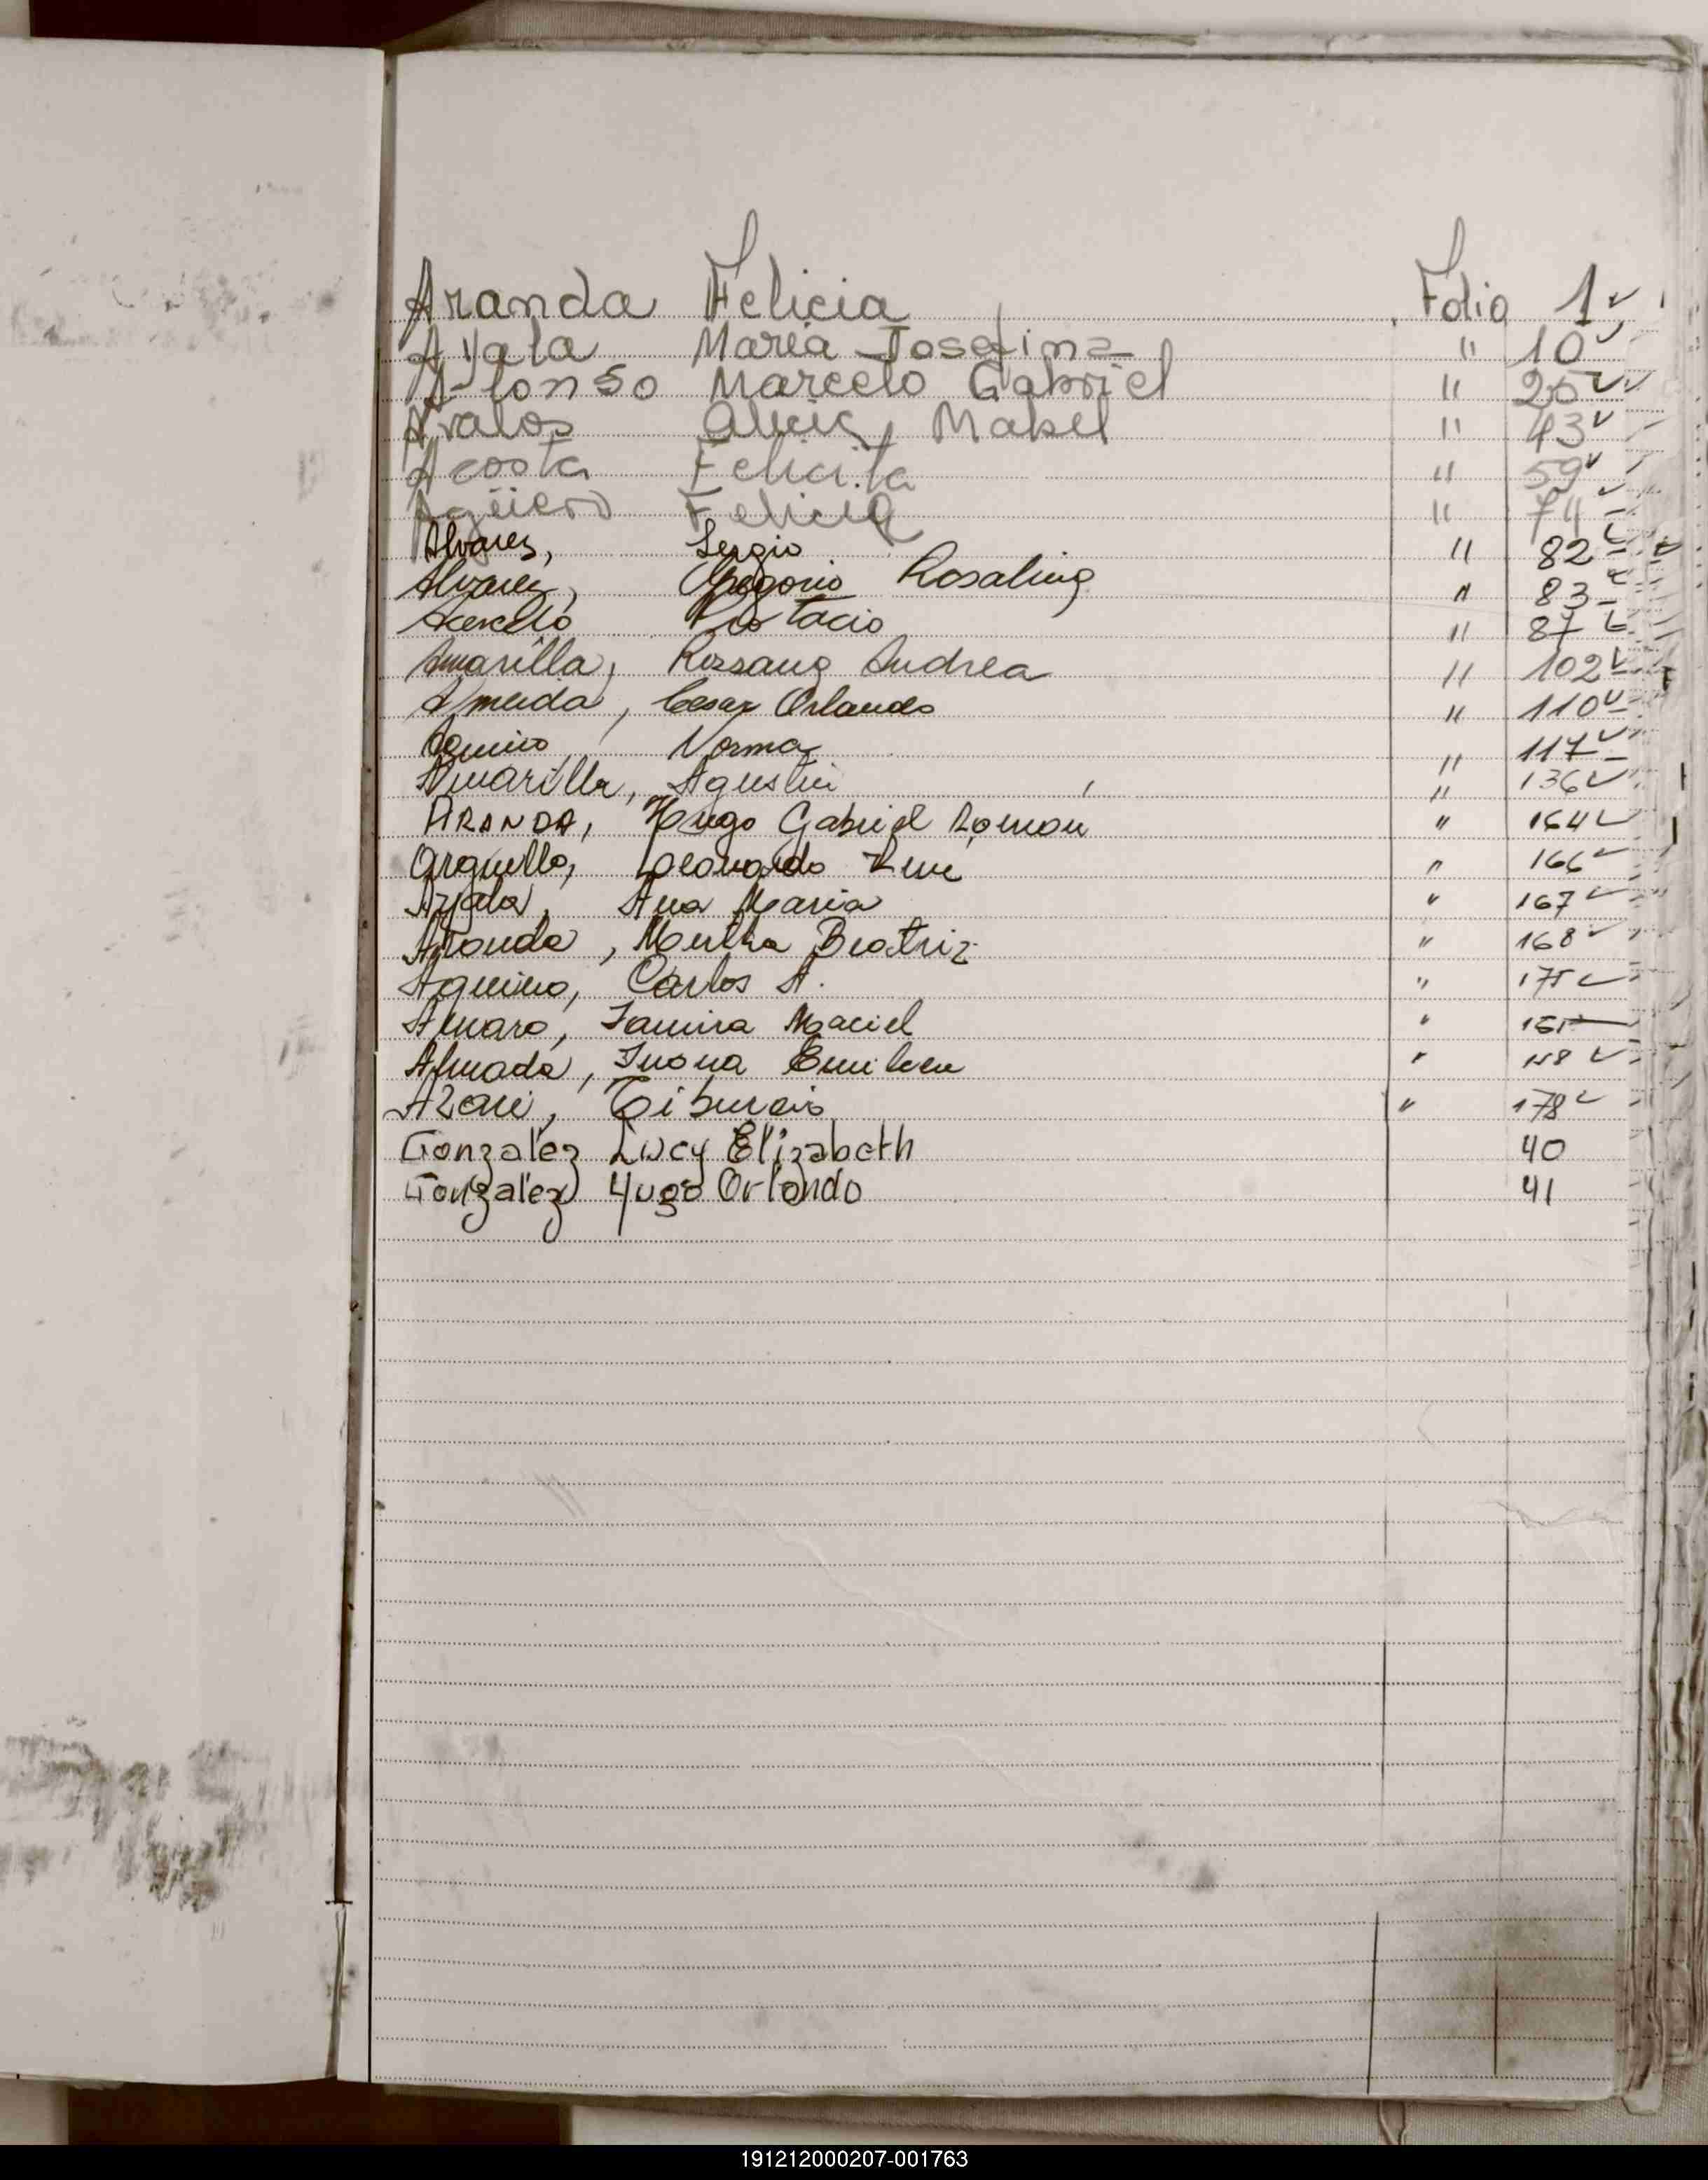 Aranda Felicia Folio 1 ✓
Ayala María Josefina " 10 ✓
Alonso Marcelo Gabriel " 25 ✓
Avalos Alicia Mabel " 43 ✓
Acosta Felicita " 59 ✓
Agüero Felicia " 74 ✓
Alvarez, Sergio " 82
Alvarez, Gregorio Rosalino " 83
Acevedo " 87
Amarilla, Rossana Andrea " 102 ✓
Almeida, Cesar Orlando " 110 ✓
Aquino Norma " 117 ✓
Amarilla, Agustin " 136 ✓
ARANDA, Hugo Gabriel Roman " 164 ✓
Arguello, Leonardo Rene " 166 ✓
Ayala, Ana Maria " 167 ✓
Aranda, Mirtha Beatriz " 168 ✓
Aquino, Carlos A. " 175 ✓
Amaro, Maciel "
Almada, " ✓
Tiburcio " 178 ✓
Gonzalez Lucy Elizabeth 40
Gonzalez Hugo Orlando 41
191212000207-001763